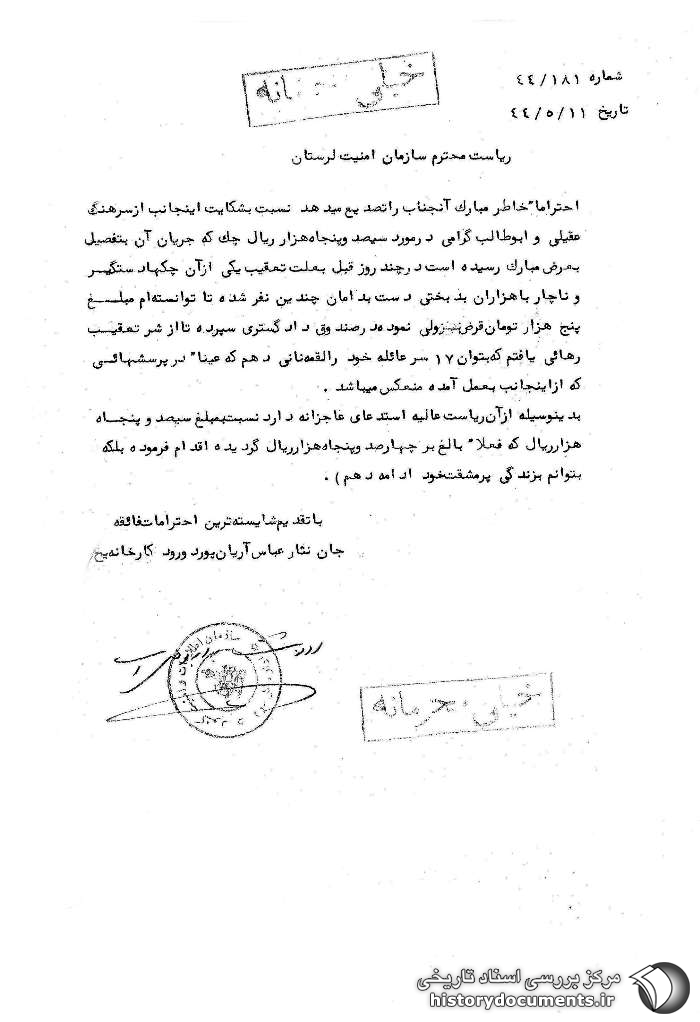 خیلی محرمانه
شماره ٤٤/١٨١
تاریخ ٤٤/٥/١١
ریاست محترم سازمان امنیت لرستان
احتراما" خاطر مبارک آنجناب راتصدیع میدهد نسبت بشکایت اینجانب ازسرهنگ
عقیلی و ابوطالب گرامی درمورد سیصد وپنجاه هزار ریال چک که جریان آن بتفصیل
بعرض مبارک رسیده است درچند روز قبل بعلت تعقیب یکی ازآن چکها دستگیر
و ناچار باهزاران بدبختی دست بدامان چندین نفر شده تا توانسته‌ام مبلغ
پنج هزار تومان قرض نزولی نموده درصندوق دادگستری سپرده تااز شر تعقیب
رهائی یافتم که بتوان ١٧ سر عائله خود رالقمه‌نانی دهم که عینا" در پرسشهائی
که ازاینجانب بعمل آمده منعکس میباشد .
بدینوسیله ازآن ریاست عالیه استدعای عاجزانه دارد نسبت بمبلغ سیصد و پنجاه
هزارریال که فعلا" بالغ بر چهارصد وپنجاه هزارریال گردیده اقدام فرموده بلکه
بتوانم بزندگی پرمشقت خود ادامه دهم ) .
باتقدیم شایسته‌ترین احترامات فائقه
جان نثار عباس آریان پور دورود کارخانه یخ
سازمان اطلاعات و امنیت
خیلی محرمانه
مرکز بررسی اسناد تاریخی
historydocuments.ir